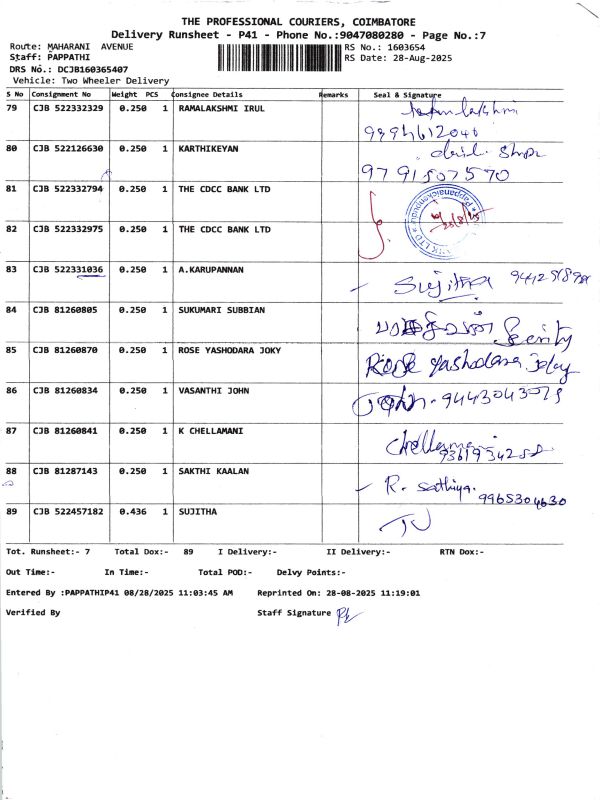 THE PROFESSIONAL COURIERS, COIMBATORE
Delivery Runsheet - P41 - Phone No.:9047080280 - Page No.:7
Route: MAHARANI AVENUE RS No.: 1603654
Staff: PAPPATHI RS Date: 28-Aug-2025
DRS No.: DCJB160365407
Vehicle: Two Wheeler Delivery
S No Consignment No Weight PCS Consignee Details Remarks Seal & Signature
79 CJB 522332329 0.250 1 RAMALAKSHMI IRUL
80 CJB 522126630 0.250 1 KARTHIKEYAN
9791507570
81 CJB 522332794 0.250 1 THE CDCC BANK LTD
82 CJB 522332975 0.250 1 THE CDCC BANK LTD
83 CJB 522331036 0.250 1 A.KARUPANNAN Sujitha
84 CJB 81260805 0.250 1 SUKUMARI SUBBIAN
85 CJB 81260870 0.250 1 ROSE YASHODARA JOKY Rose Yashodara
86 CJB 81260834 0.250 1 VASANTHI JOHN John
87 CJB 81260841 0.250 1 K CHELLAMANI Chellamani
88 CJB 81287143 0.250 1 SAKTHI KAALAN R. Sathiya.
9965304630
89 CJB 522457182 0.436 1 SUJITHA
Tot. Runsheet:- 7 Total Dox:- 89 I Delivery:- II Delivery:- RTN Dox:-
Out Time:- In Time:- Total POD:- Delvy Points:-
Entered By :PAPPATHIP41 08/28/2025 11:03:45 AM Reprinted On: 28-08-2025 11:19:01
Verified By Staff Signature